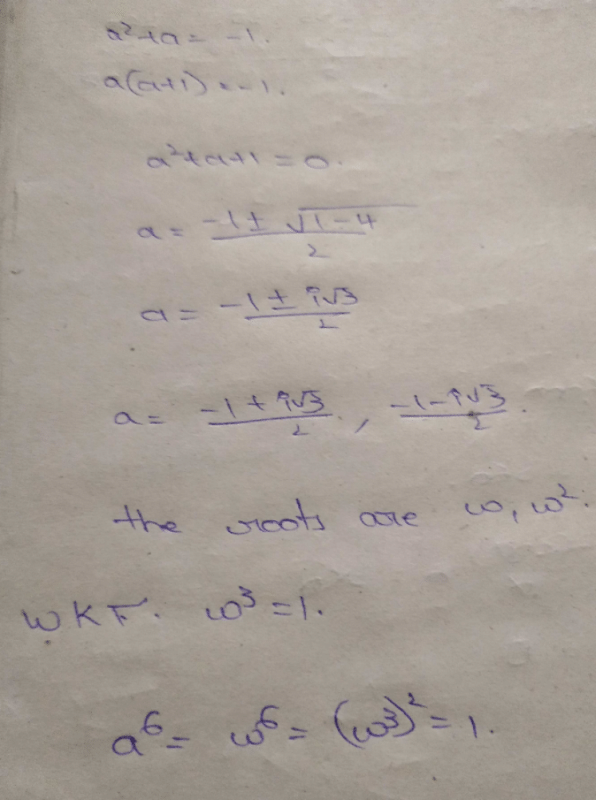 a²+a = -1.
a(a+1) = -1.
a²+a+1 = 0.
a = (-1 ± √(1-4))/2
a = (-1 ± i√3)/2
a = (-1 + i√3)/2, (-1 - i√3)/2.
the roots are ω, ω².
WKT. ω³ = 1.
a⁶ = ω⁶ = (ω³)² = 1.